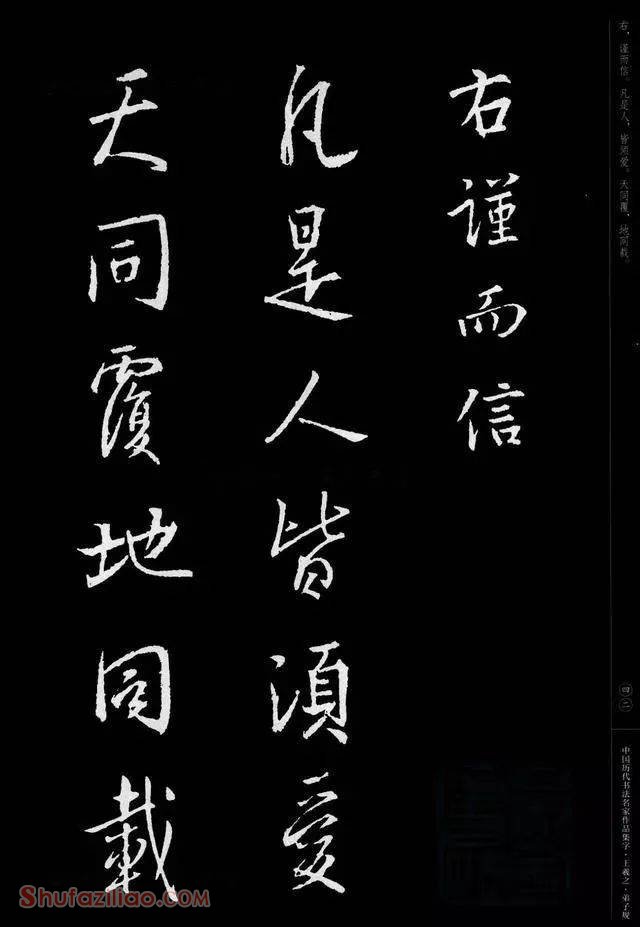 右谨而信。凡是人，皆须爱。天同覆，地同载。
右謹而信
凡是人皆須愛
天同覆地同載
四二
中国历代书法名家作品集字·王羲之·弟子规
Shufaziliao.com